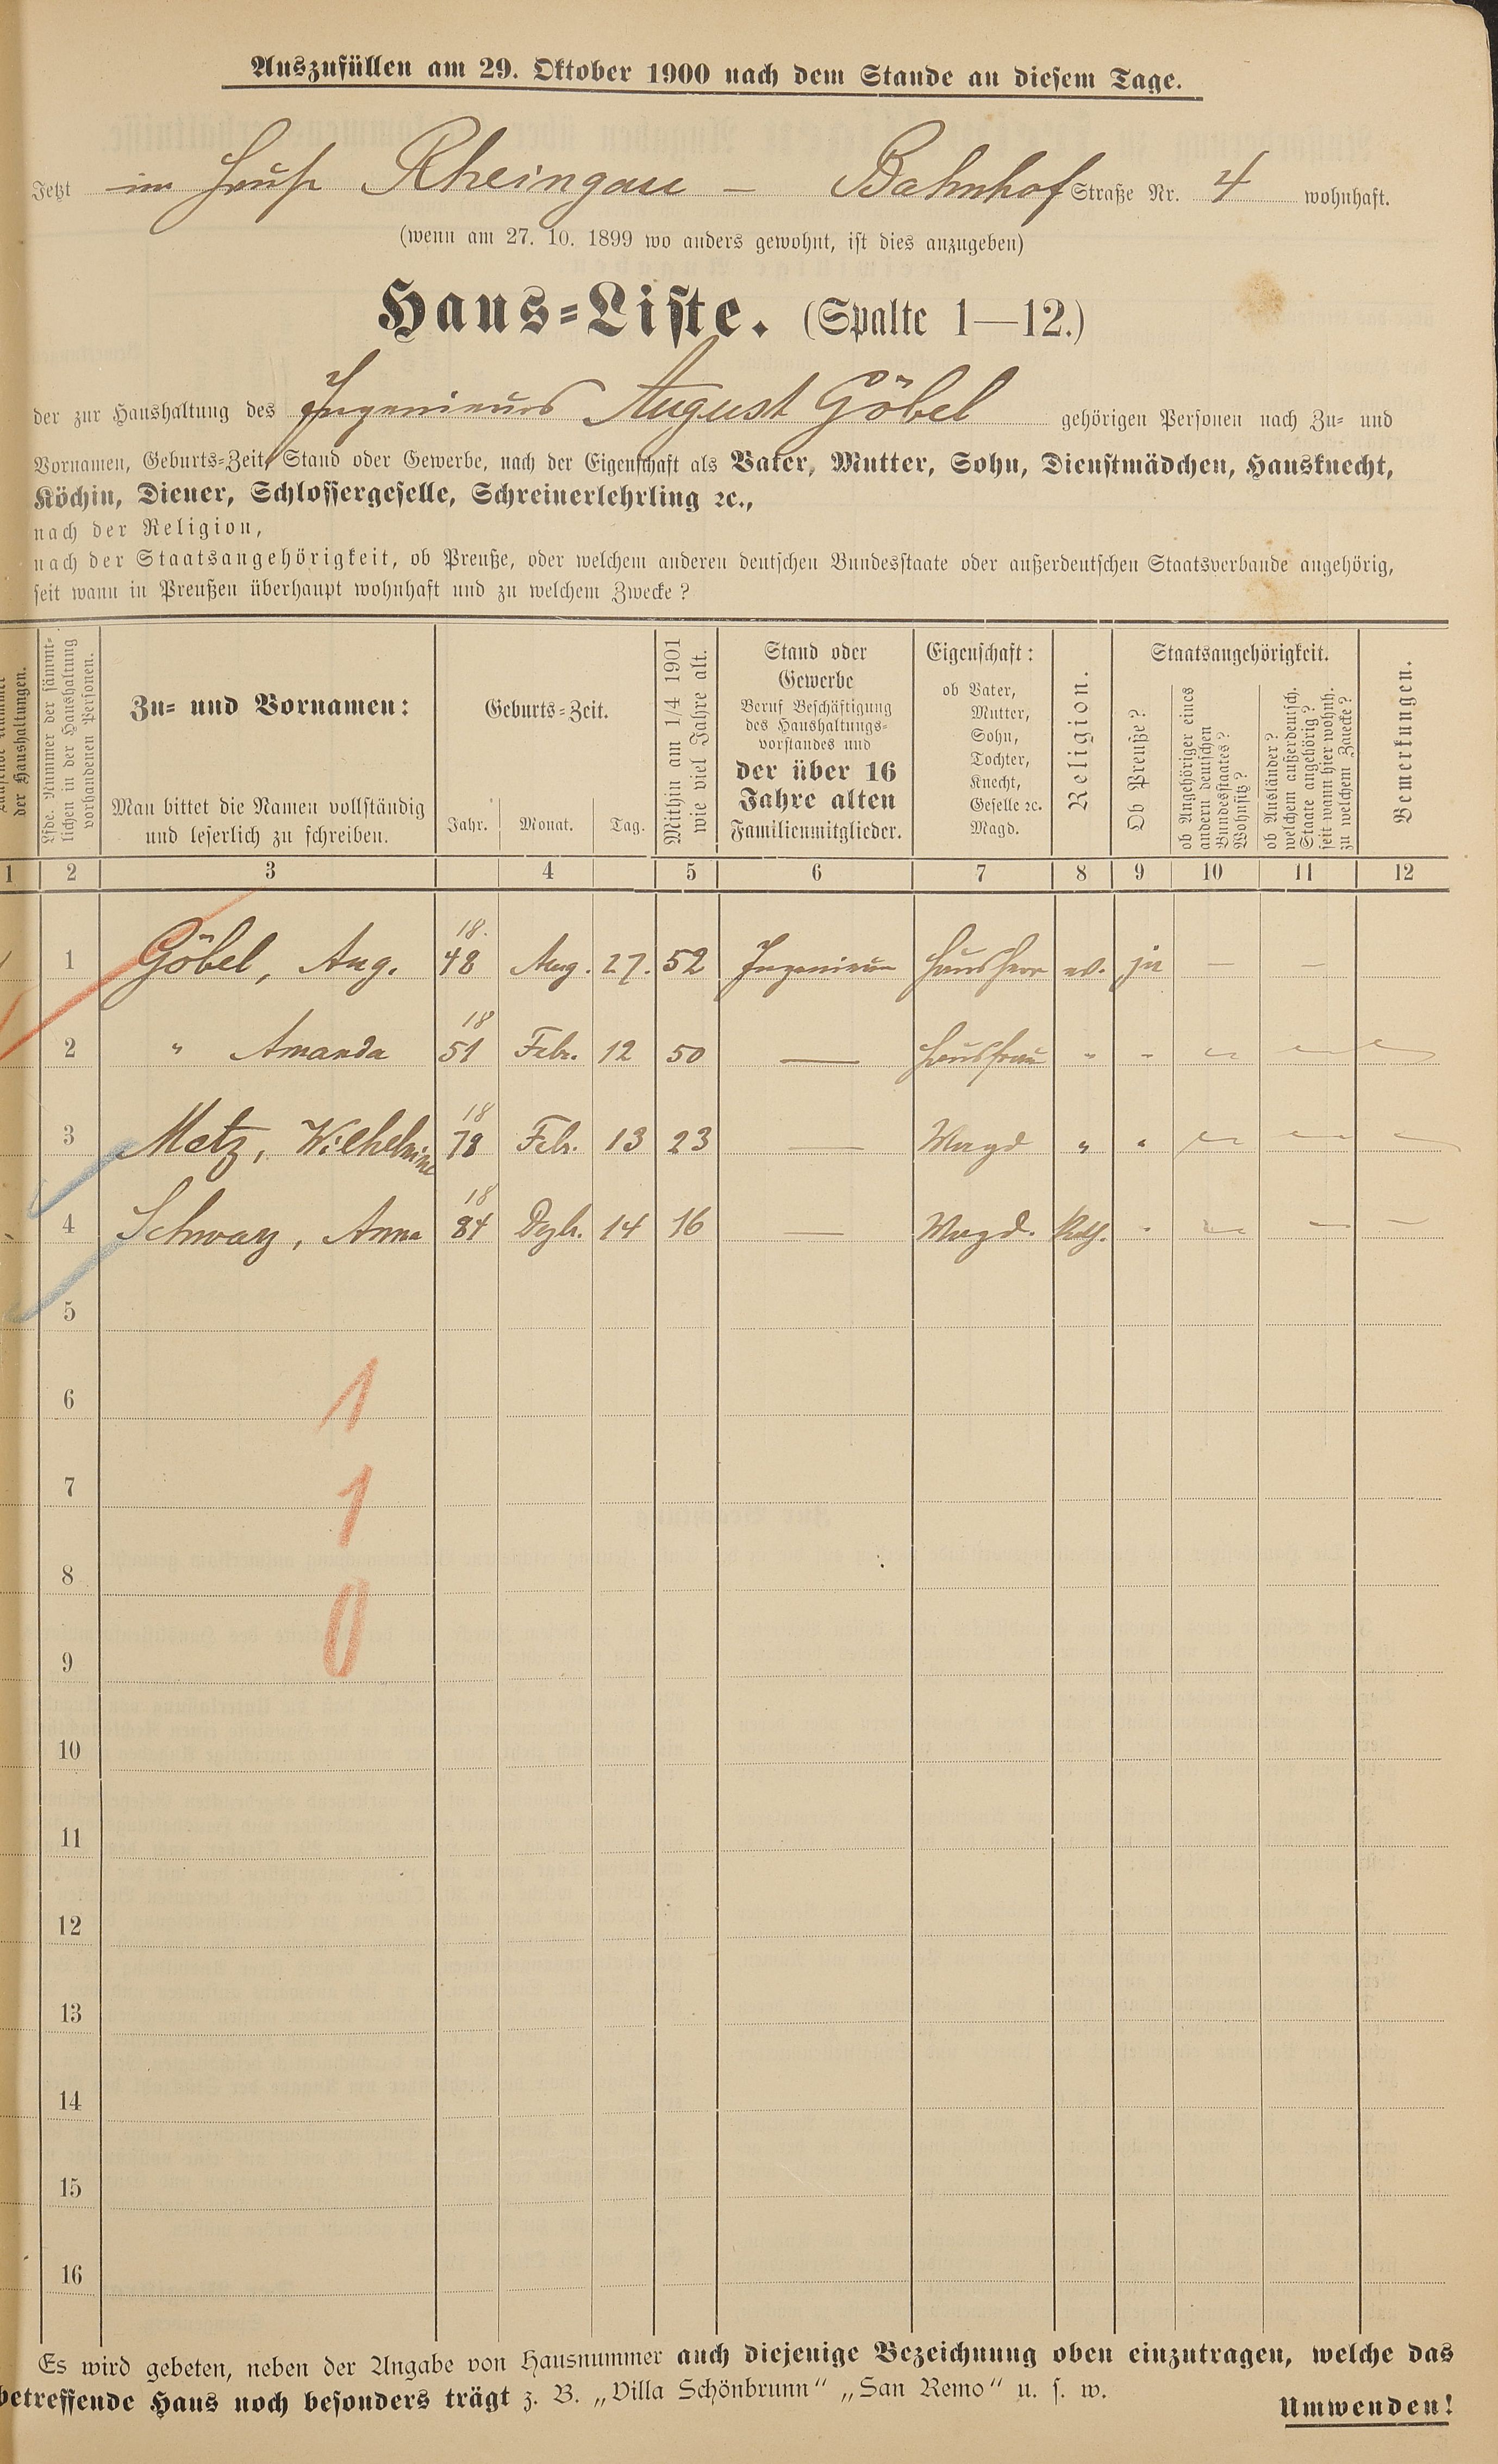 Auszufüllen am 29. Oktober 1900 nach dem Stande an diesem Tage.
Jetzt im Hause Rheingau – Bahnhof Straße Nr. 4 wohnhaft.
(wenn am 27. 10. 1899 wo anders gewohnt, ist dies anzugeben)
Haus=Liste. (Spalte 1—12.)
der zur Haushaltung des Ingenieurs August Göbel gehörigen Personen nach Zu= und
Vornamen, Geburts=Zeit, Stand oder Gewerbe, nach der Eigenschaft als Vater, Mutter, Sohn, Dienstmädchen, Hausknecht,
Köchin, Diener, Schlossergeselle, Schreinerlehrling ꝛc.,
nach der Religion,
nach der Staatsangehörigkeit, ob Preuße, oder welchem anderen deutschen Bundesstaate oder außerdeutschen Staatsverbande angehörig,
seit wann in Preußen überhaupt wohnhaft und zu welchem Zwecke?
der Haushaltungen.
Lfde. Nummer der sämmt=
lichen in der Haushaltung
vorhandenen Personen.
Zu= und Vornamen:
Man bittet die Namen vollständig
und leserlich zu schreiben.
Geburts=Zeit.
Jahr. Monat. Tag.
Mithin am 1/4 1901
wie viel Jahre alt.
Stand oder
Gewerbe
Beruf Beschäftigung
des Haushaltungs=
vorstandes und
der über 16
Jahre alten
Familienmitglieder.
Eigenschaft:
ob Vater,
Mutter,
Sohn,
Tochter,
Knecht,
Geselle ꝛc.
Magd.
Religion.
Staatsangehörigkeit.
Ob Preuße?
ob Angehöriger eines
andern deutschen
Bundesstaates?
Wohnsitz?
ob Ausländer?
welchem außerdeutsch.
Staate angehörig?
seit wann hier wohnh.
zu welchem Zwecke?
Bemerkungen.
1 2 3 4 5 6 7 8 9 10 11 12
1 Göbel, Aug. 18. 48 Aug. 27. 52 Ingenieur Hausherr ev. ja — —
2 " Amanda 18 51 Febr. 12 50 — Hausfrau " "
3 Metz, Wilhelmine 18 78 Febr. 13 23 — Magd " "
4 Schwarz, Anna 18 84 Dezb. 14 16 — Magd. Kath. "
5
6 1
7 1
8
9 0
10
11
12
13
14
15
16
Es wird gebeten, neben der Angabe von Hausnummer auch diejenige Bezeichnung oben einzutragen, welche das
betreffende Haus noch besonders trägt z. B. „Villa Schönbrunn“ „San Remo“ u. s. w.
Umwenden!